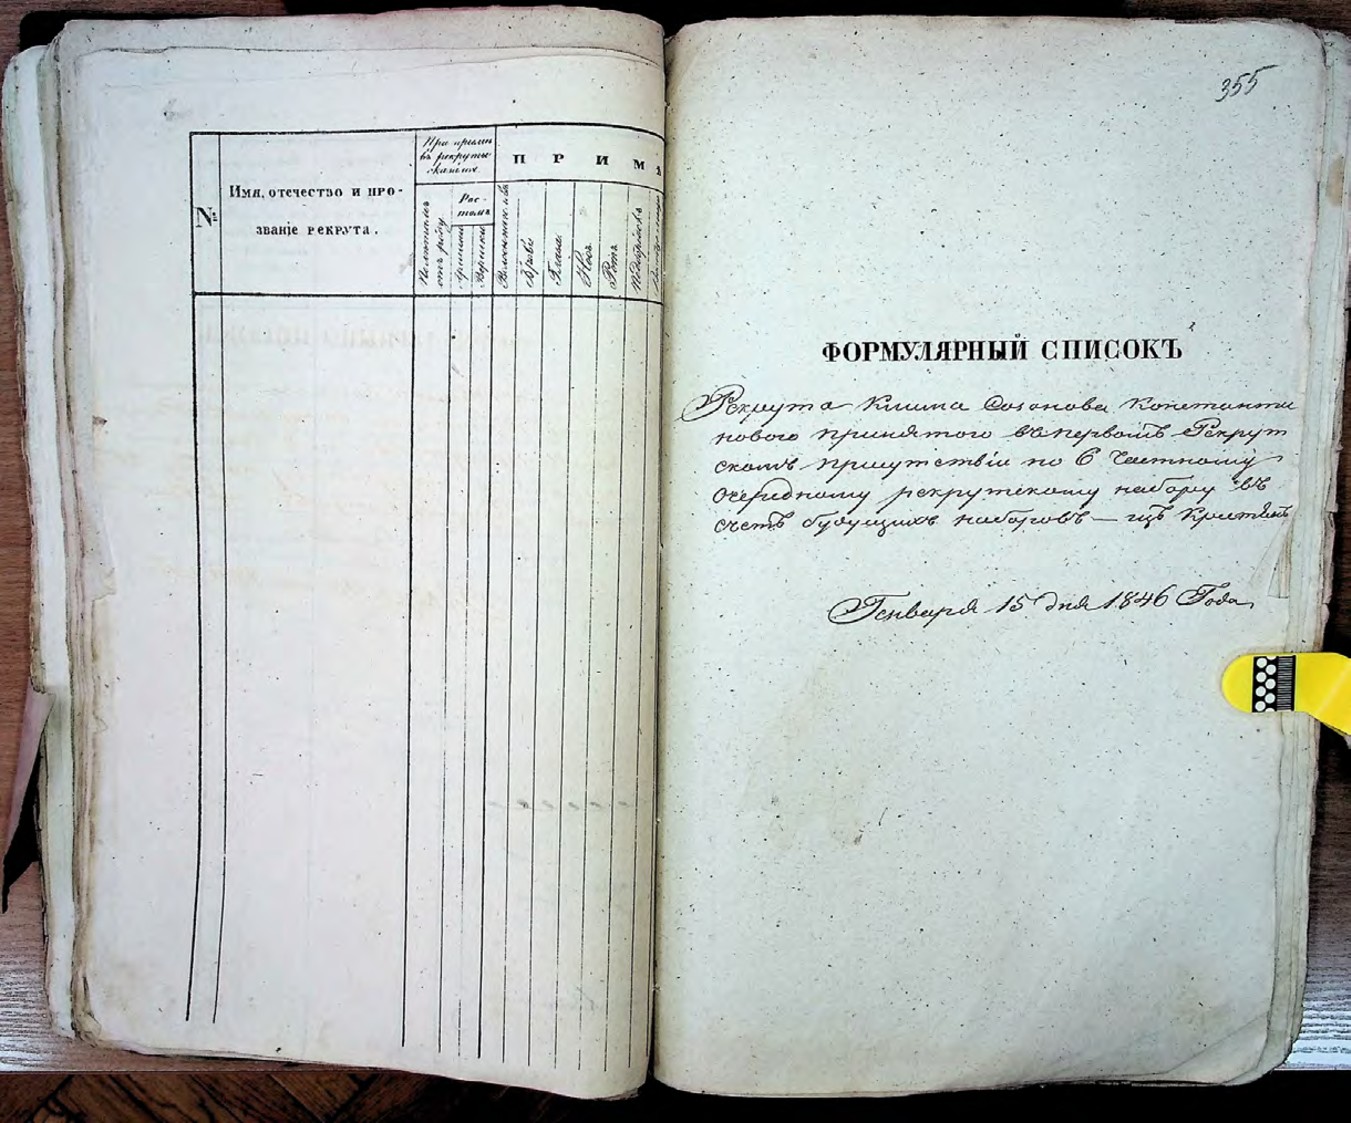 №
Имя, отечество и про-
званіе рекрута.
При пріемѣ
въ рекруты
оказался
Рос-
томъ
отъ роду
Аршины
Вершки
ПРИМѢ
Брови
Глаза
Носъ
Ротъ
Подбородокъ
355
ФОРМУЛЯРНЫЙ СПИСОКЪ
Рекрута Клима Созонова Константи
нового принятого въ первомъ Рекрут
скомъ присутствіи по 6 частному
очередному рекрутскому набору въ
счетъ будущихъ наборовъ — изъ Крестьянъ
Генваря 15 дня 1846 Года